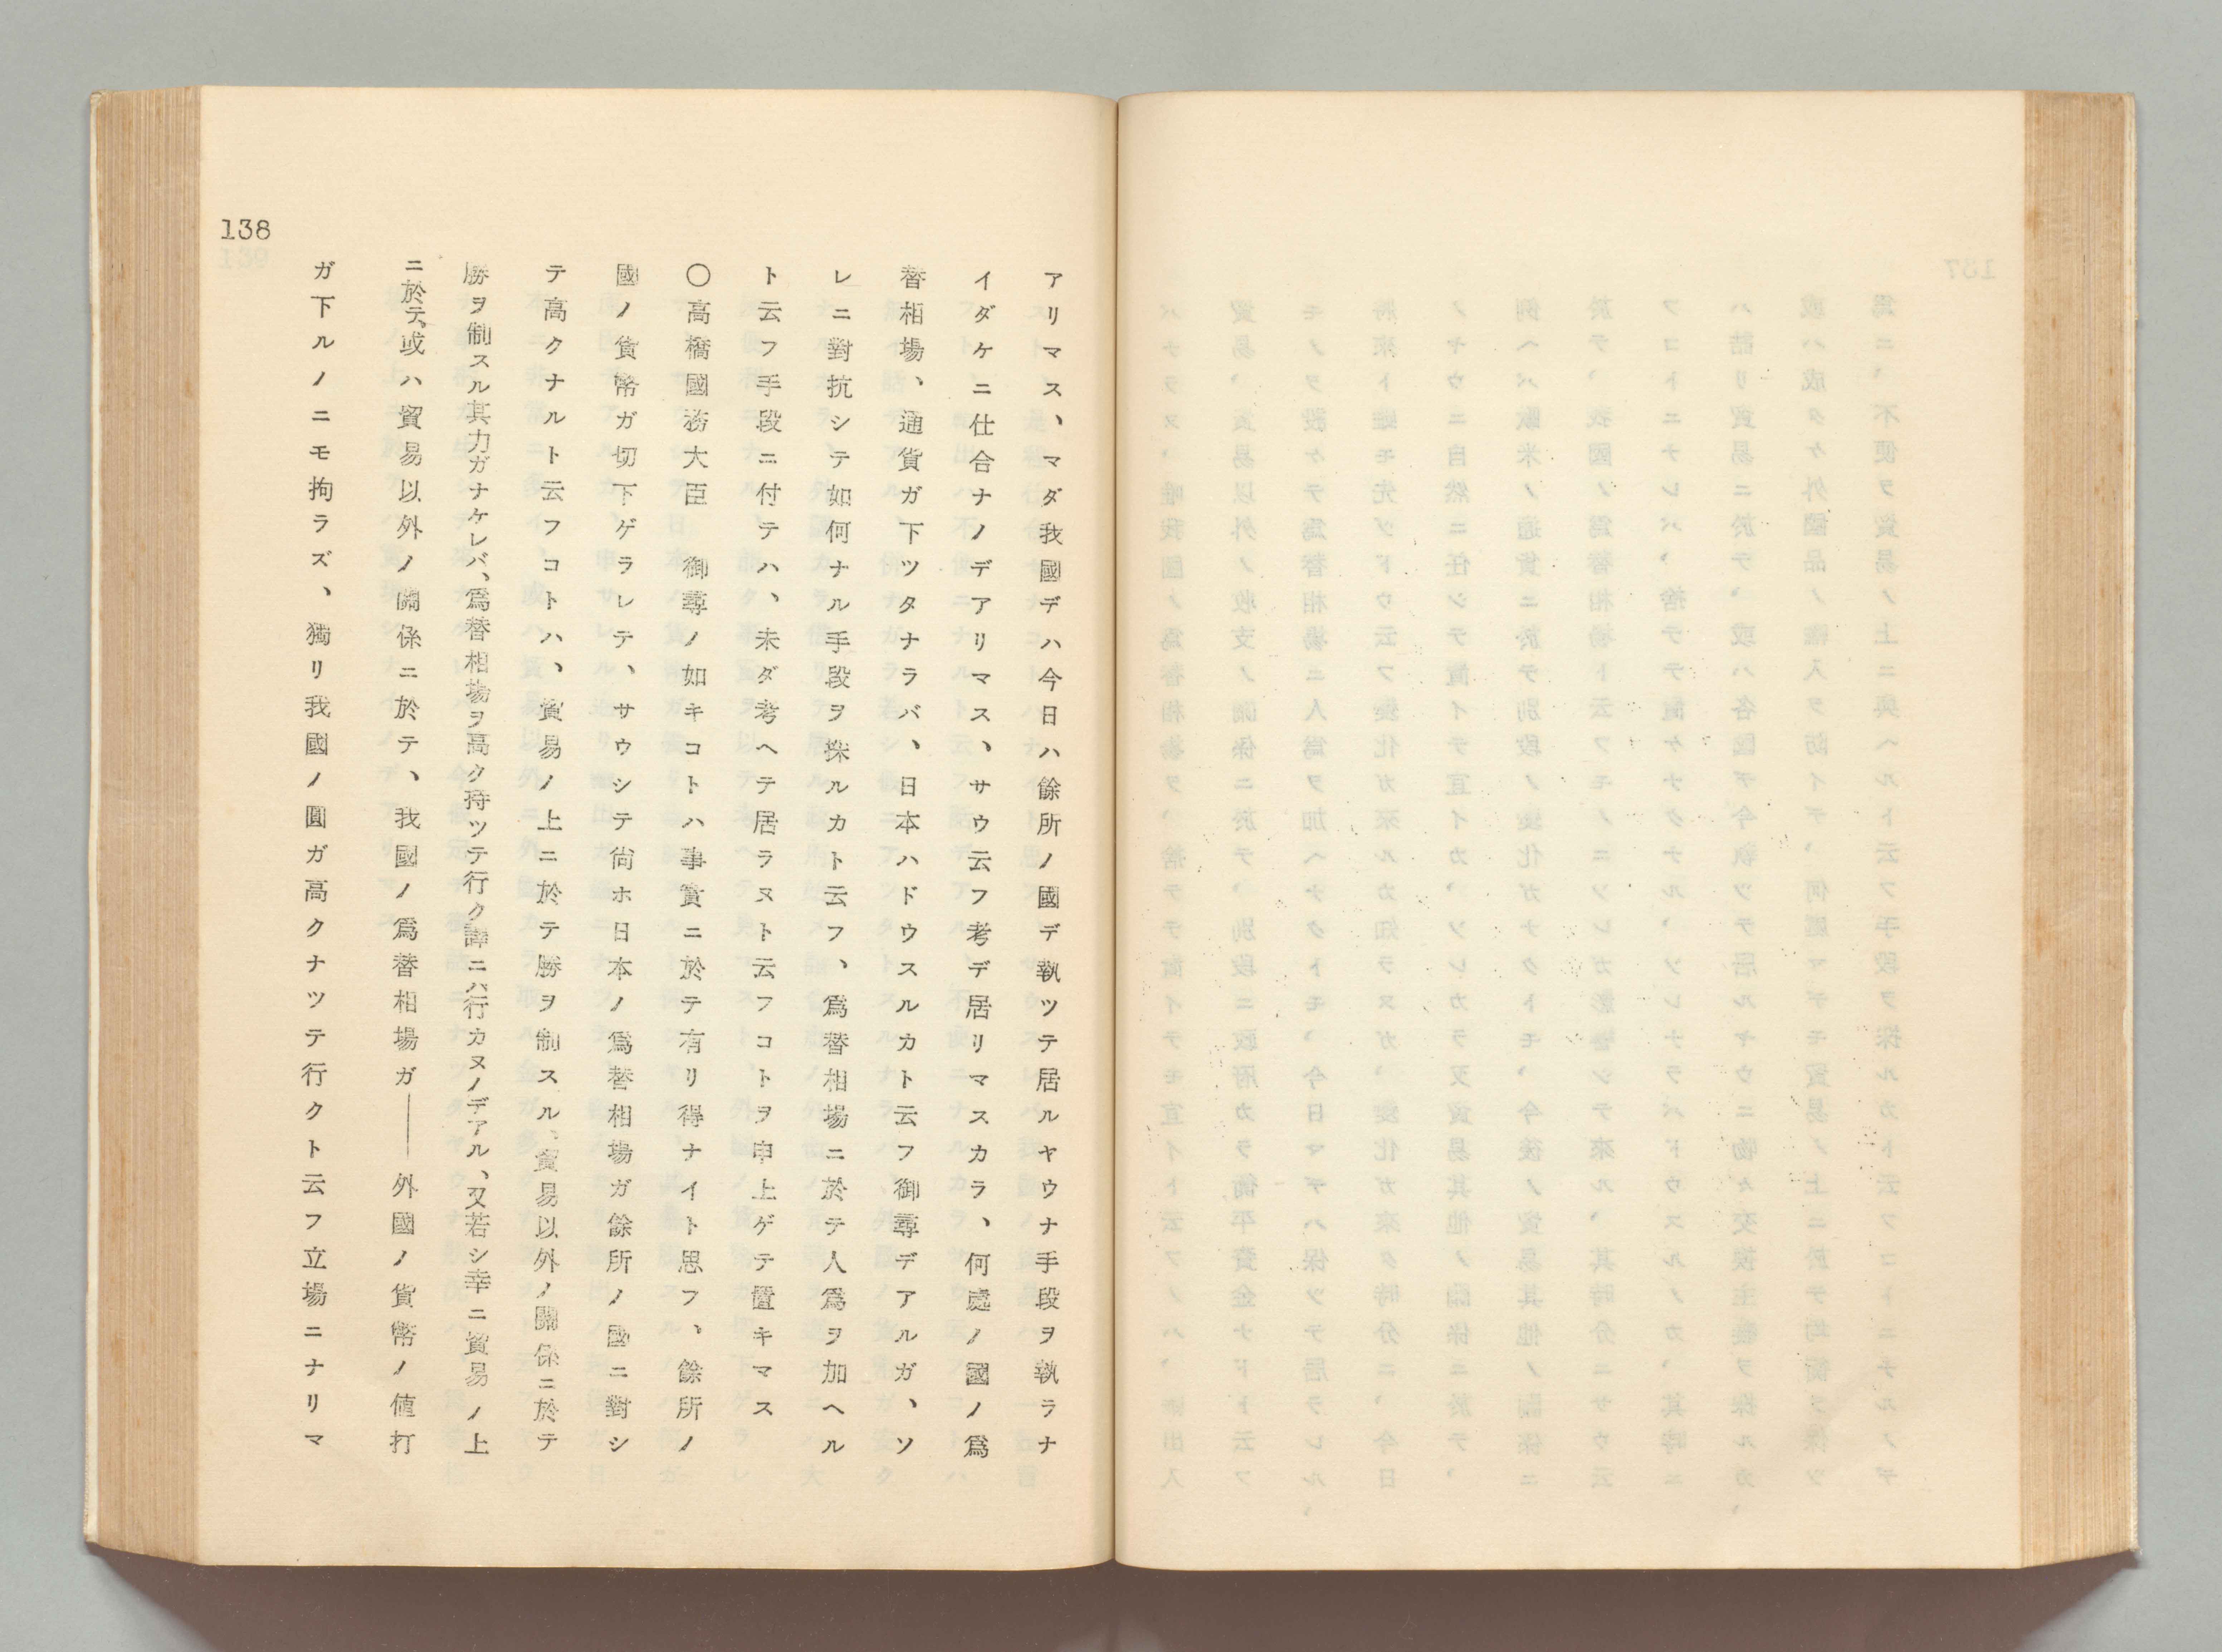 138
アリマス、マダ我國デハ今日ハ餘所ノ國デ執ツテ居ルヤウナ手段ヲ執ラナ
イダケニ仕合ナノデアリマス、サウ云フ考デ居リマスカラ、何處ノ國ノ爲
替相場、通貨ガ下ツタナラバ、日本ハドウスルカト云フ御尋デアルガ、ソ
レニ對抗シテ如何ナル手段ヲ採ルカト云フ、爲替相場ニ於テ人爲ヲ加ヘル
ト云フ手段ニ付テハ、未ダ考ヘテ居ラヌト云フコトヲ申上ゲテ置キマス
〇高橋國務大臣 御尋ノ如キコトハ事實ニ於テ有リ得ナイト思フ、餘所ノ
國ノ貨幣ガ切下ゲラレテ、サウシテ尙ホ日本ノ爲替相場ガ餘所ノ國ニ對シ
テ高クナルト云フコトハ、貿易ノ上ニ於テ勝ヲ制スル、貿易以外ノ關係ニ於テ
勝ヲ制スル其力ガナケレバ、爲替相場ヲ高ク持ツテ行ク譯ニハ行カヌノデアル、又若シ幸ニ貿易ノ上
ニ於テ、或ハ貿易以外ノ關係ニ於テ、我國ノ爲替相場ガ――外國ノ貨幣ノ値打
ガ下ルノニモ拘ラズ、獨リ我國ノ圓ガ高クナツテ行クト云フ立場ニナリマ